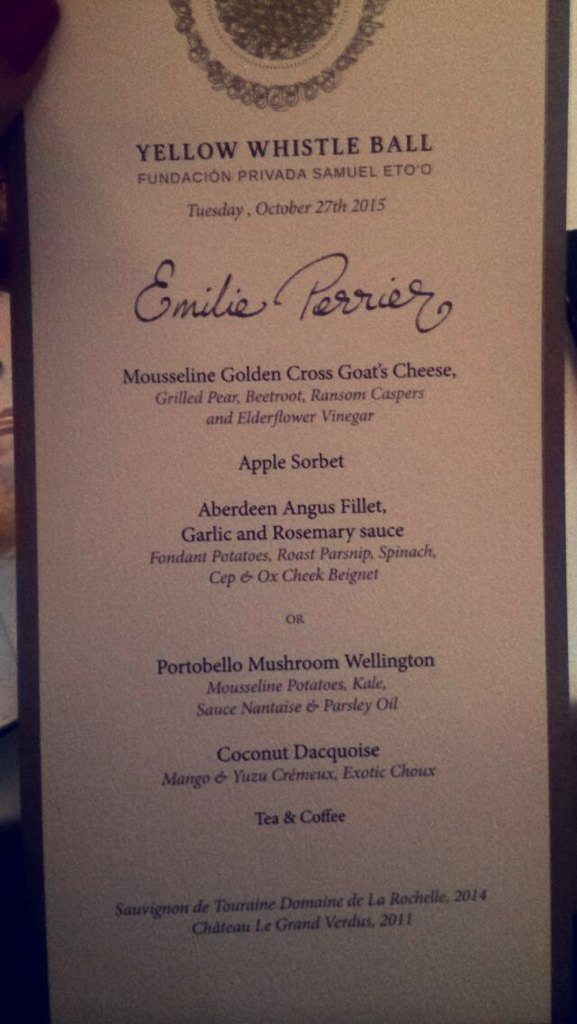 YELLOW WHISTLE BALL
FUNDACIÓN PRIVADA SAMUEL ETO'O
Tuesday , October 27th 2015
Emilie Perrier
Mousseline Golden Cross Goat's Cheese,
Grilled Pear, Beetroot, Ransom Caspers
and Elderflower Vinegar
Apple Sorbet
Aberdeen Angus Fillet,
Garlic and Rosemary sauce
Fondant Potatoes, Roast Parsnip, Spinach,
Cep & Ox Cheek Beignet
OR
Portobello Mushroom Wellington
Mousseline Potatoes, Kale,
Sauce Nantaise & Parsley Oil
Coconut Dacquoise
Mango & Yuzu Crémeux, Exotic Choux
Tea & Coffee
Sauvignon de Touraine Domaine de La Rochelle, 2014
Château Le Grand Verdus, 2011